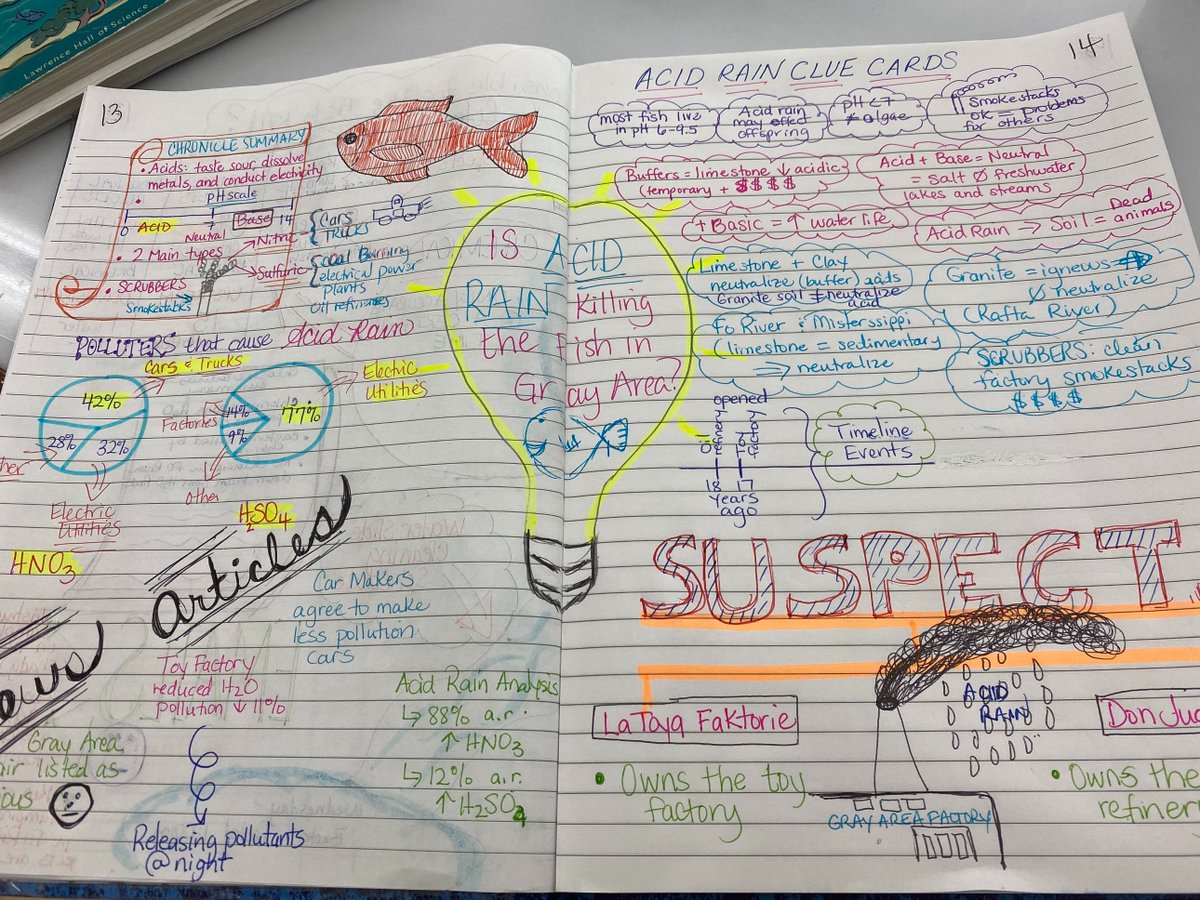 Lawrence Hall of Science
13
CHRONICLE SUMMARY
• Acids: taste sour, dissolve
metals, and conduct electricity
• pH scale
0 ACID 7 Base 14
Neutral
• 2 Main types
Nitric
Cars
TRUCKS
Sulfuric
Coal Burning
electrical power
plants
Oil refineries
• SCRUBBERS
Smokestacks
POLLUTERS that cause Acid Rain
Cars & Trucks
42%
28%
32%
Electric
Utilities
HNO3
Factories
14%
9%
77%
Electric
Utilities
other
H2SO4
Articles
Car Makers
agree to make
less pollution
cars
Toy Factory
reduced H2O
pollution ↓ 11%
Releasing pollutants
@night
Gray Area
listed as
Acid Rain Analysis
↳ 88% a.r.
↑ HNO3
↳ 12% a.r.
↑ H2SO4
IS ACID
RAIN Killing
the Fish in
Gray Area?
14
ACID RAIN CLUE CARDS
most fish live
in pH 6-9.5
Acid rain
may effect
offspring
pH<7
≠ algae
Smokestacks
ok = problems
for others
Buffers = limestone ↓ acidic
(temporary + $$$$
Acid + Base = Neutral
= Salt Ø freshwater
lakes and streams
+ Basic = ↑ water life
Acid Rain → Soil = Dead
animals
Limestone + Clay
neutralize (buffer) acids
Granite soil ≠ neutralize
acid
Granite = ignews
Ø neutralize
(Rafta River)
Fo River : Misterssippi
(limestone = sedimentary
⇒ neutralize
SCRUBBERS: clean
factory smokestacks
$$$$
opened
Oil
refinery
Toy
factory
18 17
years
ago
Timeline
Events
SUSPECT
LaTaya Faktorie
• Owns the toy
factory
ACID
RAIN
GRAY AREA FACTORY
• Owns the